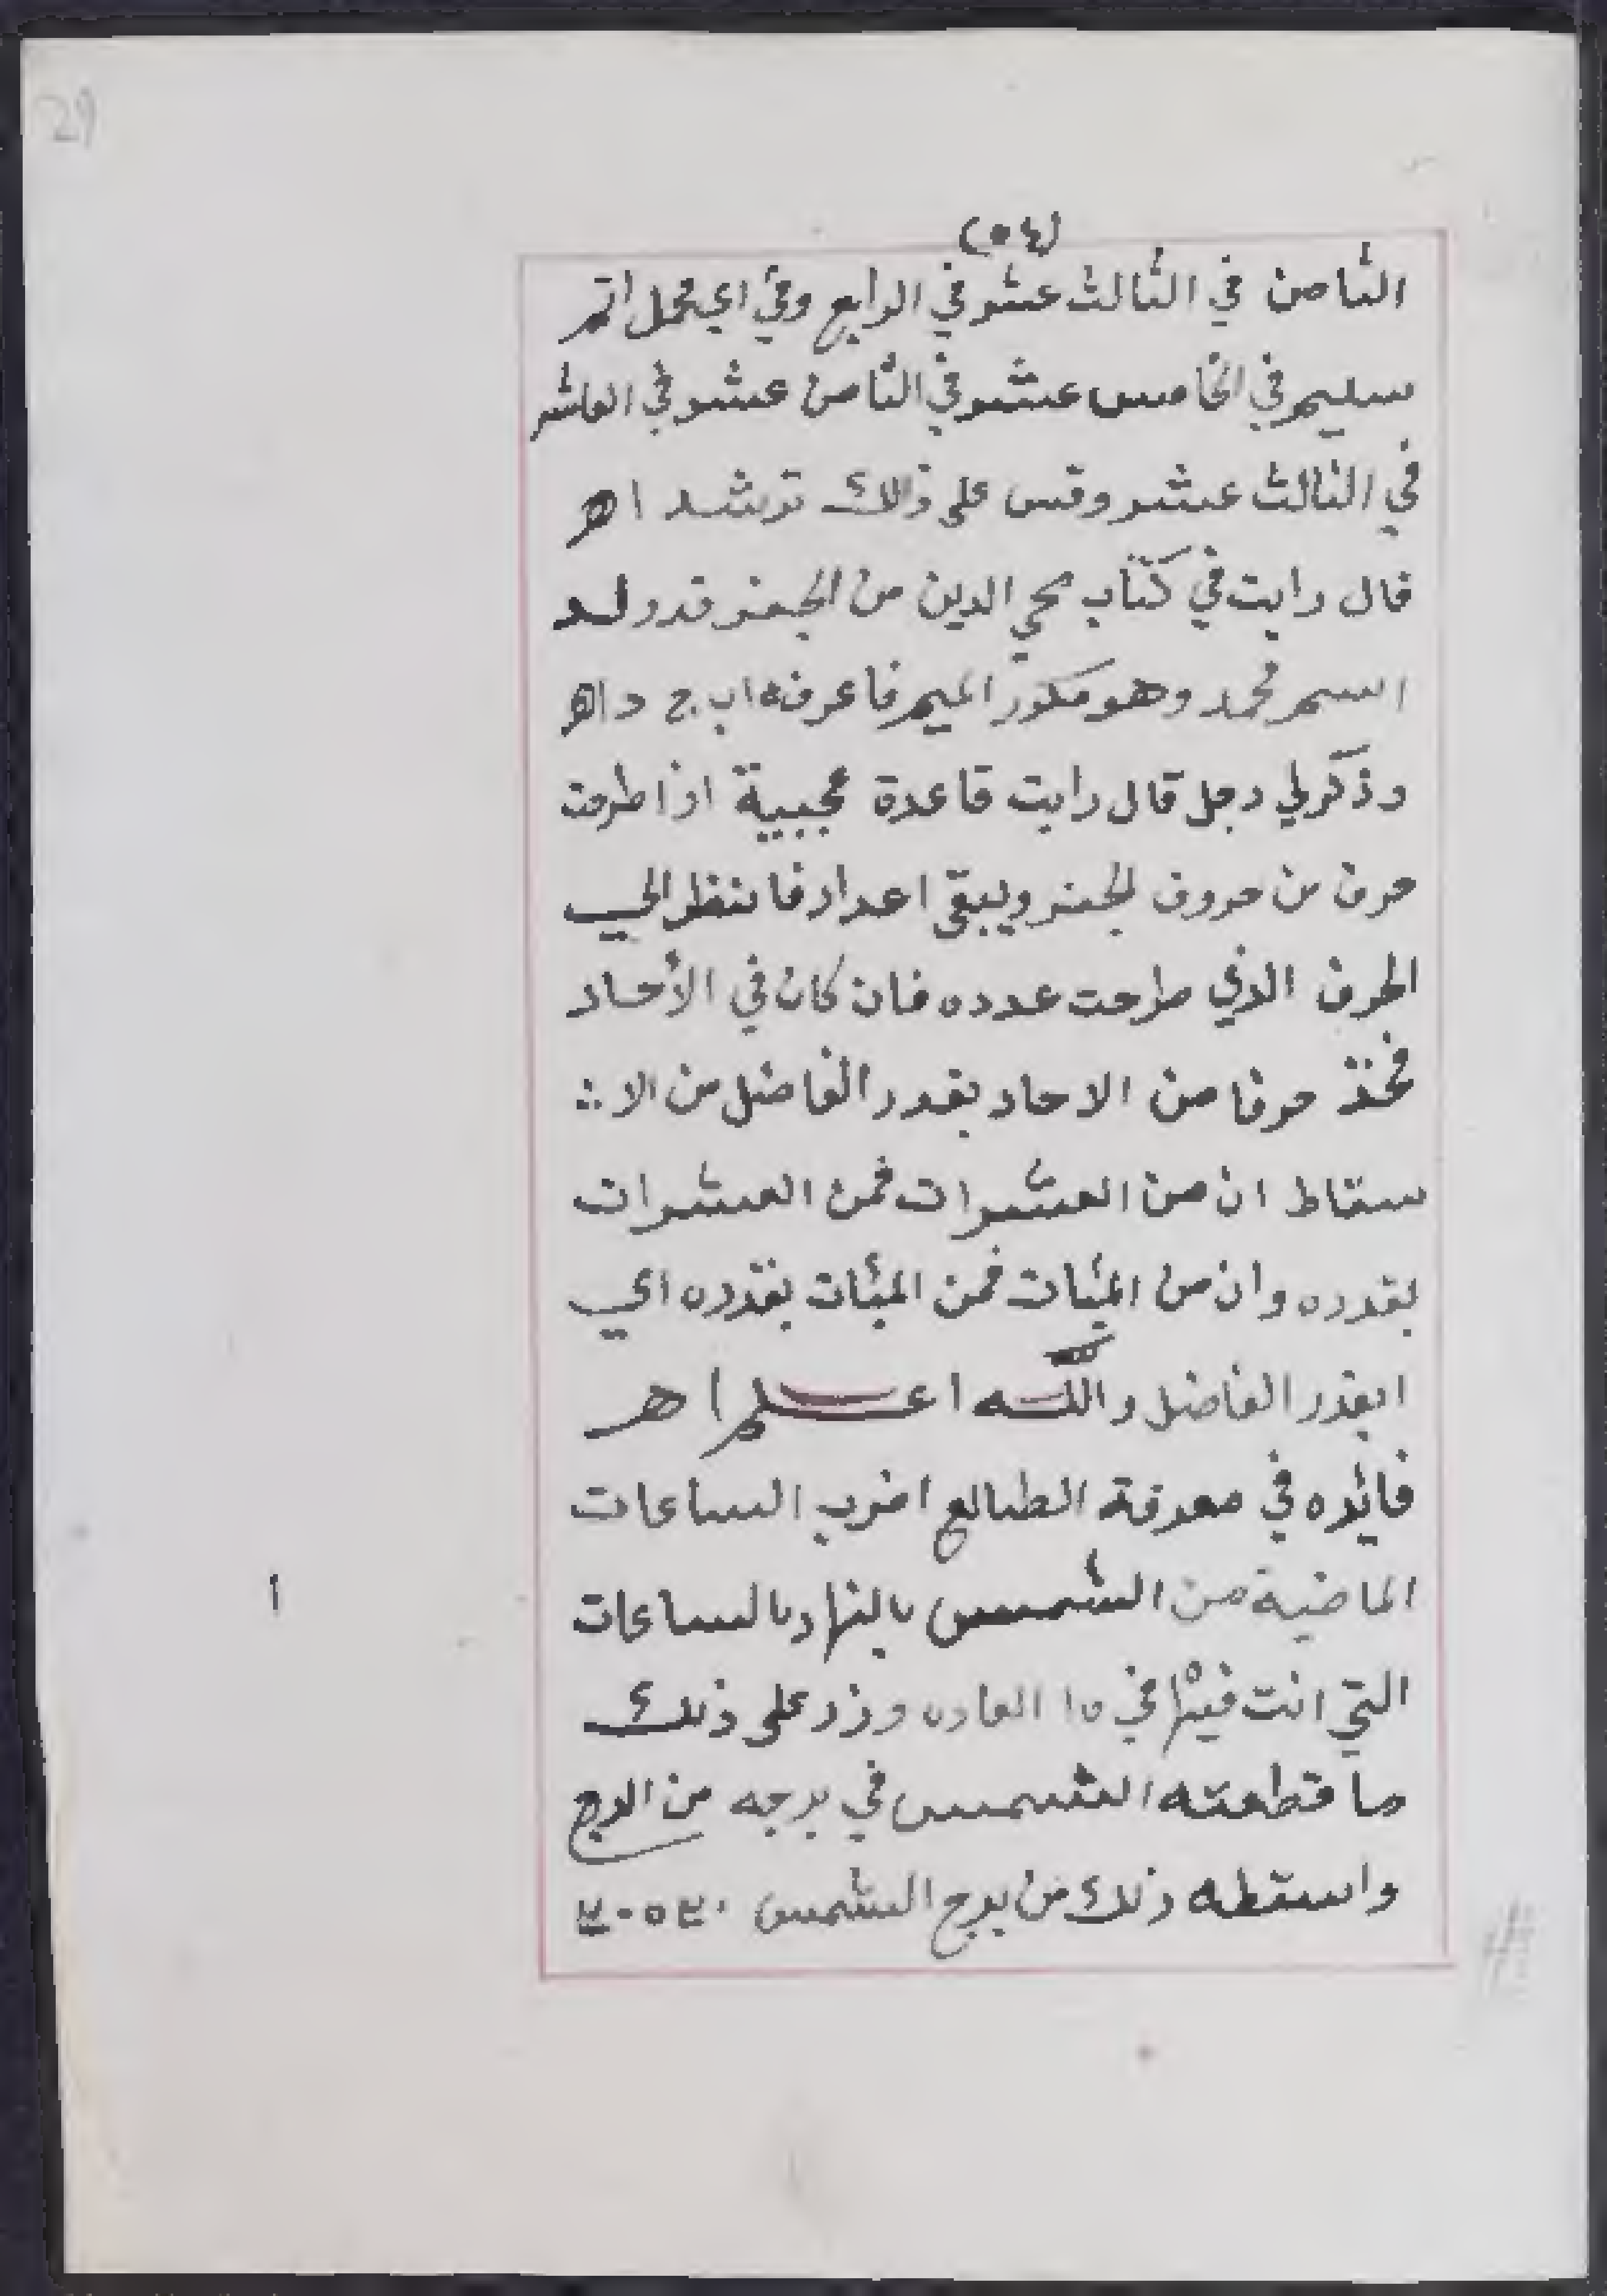 29
(٥٤)
الثامن في الثالث عشر في الرابع وفي اي محل اخر
سليم في الخامس عشر في الثامن عشر في العاشر
في الثالث عشر وقس على ذالك ترشد اهـ
قال رايت في كتاب محي الدين من الجفر قد ولد
اسم محمد وهو مكرر الميم فاعرفه اب ج د اهـ
وذكر لي رجل قال رايت قاعدة عجيبية اذا طرحت
حرف من حروف الجفر ويبقى اعداد فانظر الي
الحرف الذي طرحت عدده فان كان في الأحاد
فخذ حرفا من الاحاد بقدر الفاضل من الا
سقاط ان من العشرات فمن العشرات
بقدره وان من المئات فمن المئات بقدره اي
ابقدر الفاضل والله اعلم اهـ
فائده في معرفة الطالع اضرب الساعات
الماضية من الشمس بالنهار بالساعات
التي انت فيها في ١٥ العاده وزد على ذلك
ما قطعته الشمس في برجه من الدرج
واسقطه ذلك من برج الشمس
ا